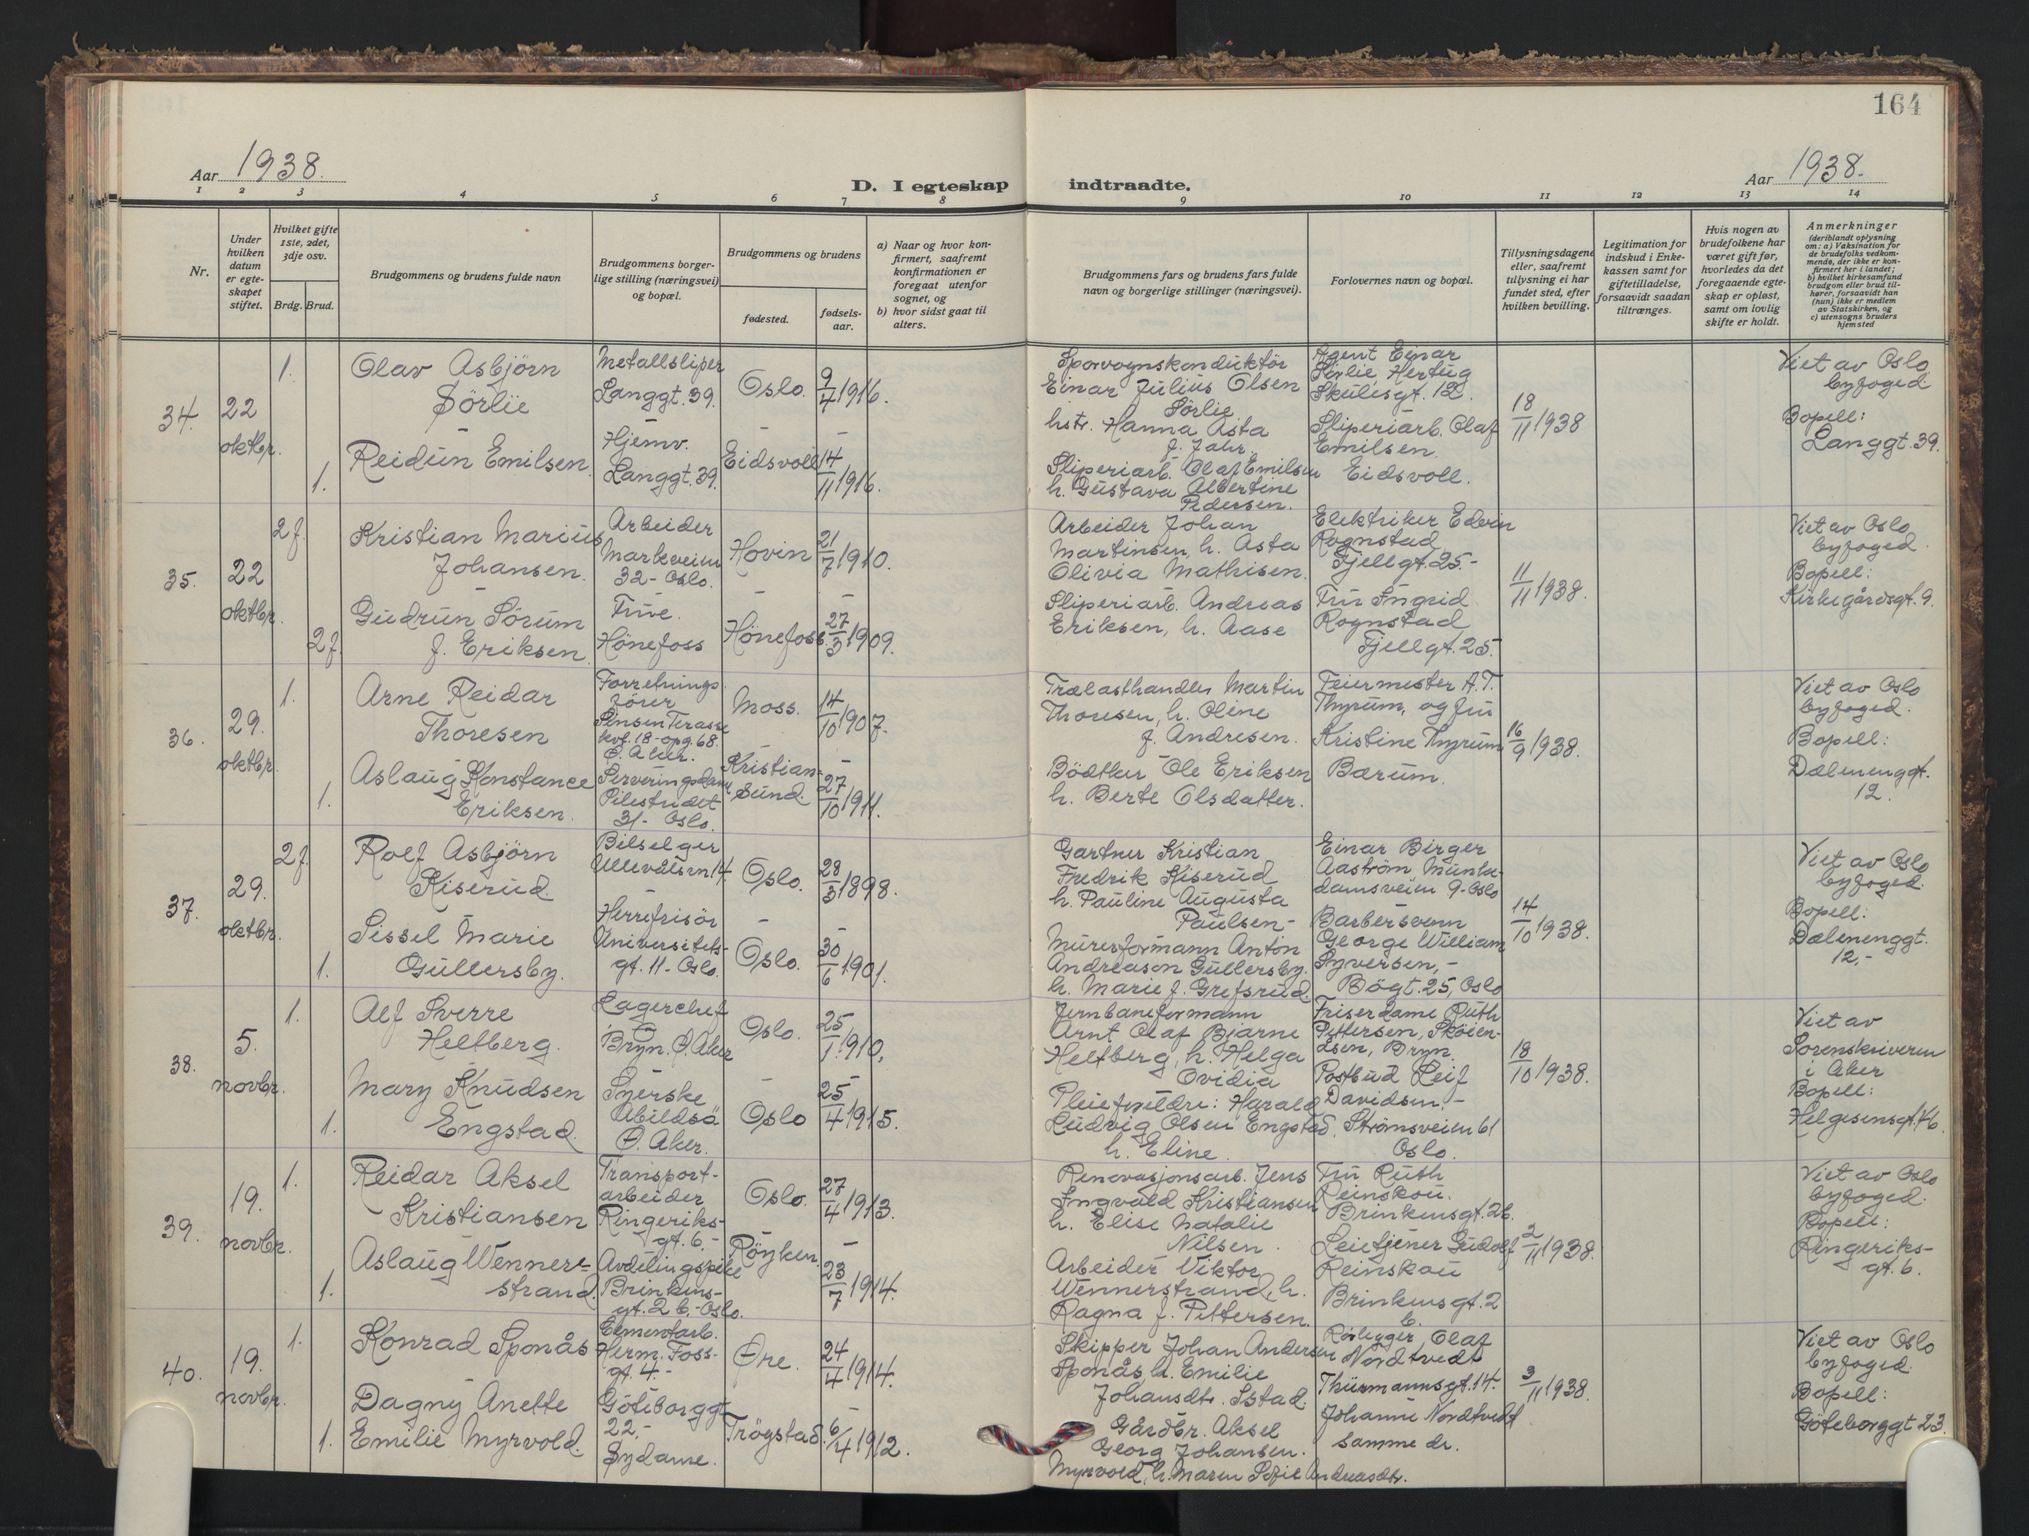 164
Aar 1938.
D. I egteskap indtraadte.
Aar 1938.
1 2 3 4 5 6 7 8 9 10 11 12 13 14
Nr.
Under hvilken datum er egteskapet stiftet.
Hvilket gifte 1ste, 2det, 3dje osv.
Brdg. Brud.
Brudgommens og brudens fulde navn
Brudgommens borgerlige stilling (næringsvei) og bopæl.
Brudgommens og brudens
fødested.
fødselsaar.
a) Naar og hvor konfirmert, saafremt konfirmationen er foregaat utenfor sognet, og
b) hvor sidst gaat til alters.
Brudgommens fars og brudens fars fulde navn og borgerlige stillinger (næringsvei).
Forlovernes navn og bopæl.
Tillysningsdagene eller, saafremt tillysning ei har fundet sted, efter hvilken bevilling.
Legitimation for indskud i Enkekassen samt for giftetilladelse, forsaavidt saadan tiltrænges.
Hvis nogen av brudefolkene har været gift før, hvorledes da det foregaaende egteskap er opløst, samt om lovlig skifte er holdt.
Anmerkninger
(deriblandt oplysning om: a) Vaksination for de brudefolks vedkommende, der ikke er konfirmert her i landet; b) hvilket kirkesamfund brudgom eller brud tilhører, forsaavidt han (hun) ikke er medlem av Statskirken, og c) utensogns bruders hjemsted
34.
22 oktbr.
1.
Olav Asbjörn
Sörlie
Metallsliper
Langgt. 39.
Oslo.
9/4 1916.
Sporvognskonduktör
Einar Julius Olsen
Sörlie
hstr. Hanna Asta
f. Jahr.
Agent Einar
Sörlie Hertug
Skulesgt. 12.
18/11 1938
Viet av Oslo
byfoged.
Bopell:
Langgt. 39.
1.
Reidun Emilsen
Hjemv.
Langgt. 39.
Eidsvoll
14/11 1916.
Sliperiarb. Olaf Emilsen
h. Gustava Albertine
Pedersen.
Sliperiarb. Olaf
Emilsen.
Eidsvoll.
35.
22 oktbr.
2 f.
Kristian Marius
Johansen.
Arbeider
Markveien
32- Oslo.
Hovin
21/7 1910.
Arbeider Johan
Martinsen, h. Asta
Olivia Mathisen.
Elektriker Edvin
Rognstad
Fjellgt. 25.-
11/11 1938.
Viet av Oslo
byfoged.
Bopell:
Kirkegårdsgt. 9.
2 f.
Gudrun Sörum
f. Eriksen.
Frue.
Hönefoss
Hönefoss.
27/3 1909.
Sliperiarb. Andreas
Eriksen, h. Aase
Fru Ingrid
Rognstad
Fjellgt. 25.
36.
29. oktbr.
1.
Arne Reidar
Thoresen
Forretnings
förer
Sinsen Terasse
kvt. 18- opg. 68.
Ö. Aker.
Moss.
14/10 1907.
Trælasthandler Martin
Thoresen, h. Oline
f. Andresen.
Feiermester A.T.
Thyrum, og fru
Kristine Thyrum
Bærum.
16/9 1938.
Viet av Oslo
byfoged.
Bopell:
Dælenenggt.
12.
1.
Aslaug Konstance
Eriksen.
Serveringsdame
Pilestredet
31- Oslo.
Kristian-
sund.
27/10 1911.
Bödtker Ole Eriksen
h. Berte Olsdatter.
37.
29. oktbr.
2 f.
Rolf Asbjörn
Kiserud.
Bilselger
Ullevålsvn. 14.
Oslo.
28/3 1898.
Gartner Kristian
Fredrik Kiserud
h. Pauline Augusta
Paulsen-
Einar Birger
Aaström, Munke-
damsveien 9- Oslo
14/10 1938.
Viet av Oslo
byfoged.
Bopell:
Dælenenggt.
12.-
1.
Sissel Marie
Gullersby.
Herrefrisör
Universitets-
gt. 11- Oslo.
Oslo.
30/6 1901.
Murerformann Anton
Andreason Gullersby.
h. Marie f. Grefsrud.
Barbersvenn
George William
Syversen,-
Bögt. 25, Oslo
38.
5. novbr.
1.
Alf Sverre
Heltberg.
Lagerchef
Bryn. Ö. Aker
Oslo.
25/1 1910.
Jernbaneformann
Arnt Olaf Bjarne
Heltberg, h. Helga
Ovidia
Friserdame Ruth
Pettersen, Sköien-
åsen, Bryn.
18/10 1938.
Viet av
Sorenskriveren
i Aker
Bopell:
Helgesensgt. 46.
1.
Mary Knudsen
Engstad.
Syerske
Abildsö
Ö. Aker.
Oslo
25/4 1915.
Pleieforeldre: Harald
Ludvig Olsen Engstad,
h. Eline.
Postbud Leif
Davidsen,-
Strömsveien 61
Oslo.
39.
19. novbr.
1.
Reidar Aksel
Kristiansen
Transport-
arbeider
Ringeriks-
gt. 6.-
Oslo.
27/4 1913.
Renovasjonsarb. Jens
Ingvald Kristiansen
h. Elise Natalie
Nilsen.
Fru Ruth
Reinskou.
Brinkensgt. 26.
2/11 1938.
Viet av Oslo
byfoged.
Bopell:
Ringeriks-
gt. 6.
1.
Aslaug Wenner-
strand.
Avdelingspike
Brinkens-
gt. 26.- Oslo.
Röyken.
23/7 1914.
Arbeider Viktor
Wennerstrand, h.
Ragna f. Pettersen.
Leietjener Gudolf
Reinskou
Brinkensgt. 2
6.
40.
19. novbr.
1.
Konrad Sponås
Cementarb.
Herm. Foss-
gt. 4.-
Öre.
24/4 1914.
Skipper Johan Andersen
Sponås, h. Emilie
Johansdtr. Istad.
Rörlegger Olaf
Nordtvedt
Thurmannsgt. 14.
3/11 1938.
Viet av Oslo
byfoged.
Bopell:
Göteborggt 23.
1.
Dagny Anette
Emilie Myrvold.
Göteborggt
22.-
Sydame.
Trögstad.
6/4 1912.
Gårdbr. Aksel
Georg Johansen.
Myrvold, h. Maren Sofie Andreasdtr.
Johanne Nordtvedt
samme dr.